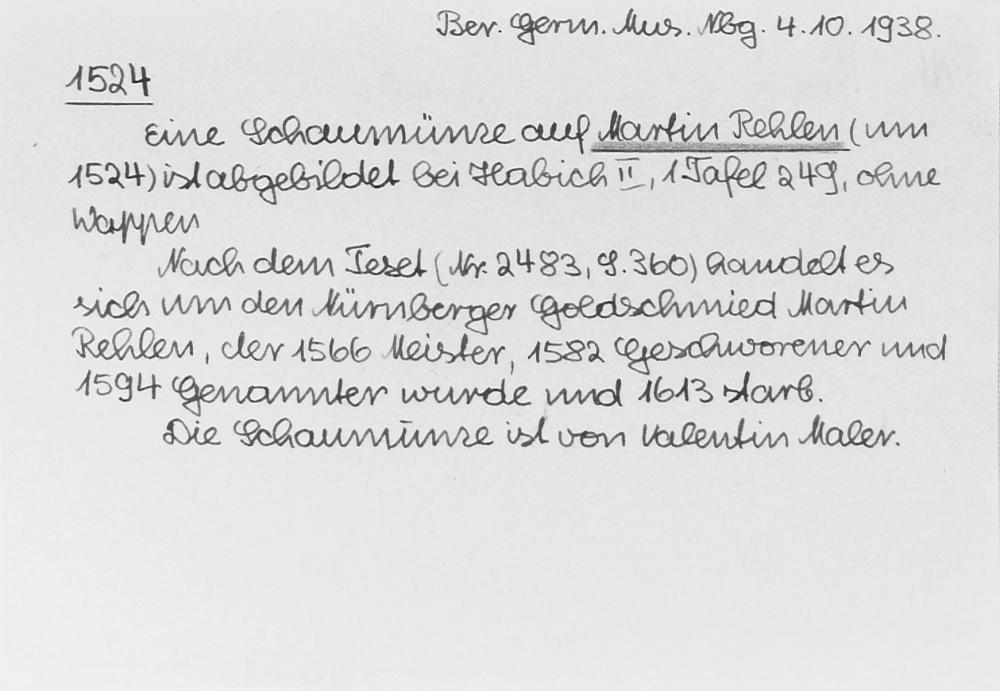 Ber. Germ. Mus. Nbg. 4.10.1938.
1524
Eine Schaumünze auf Martin Rehlen (um
1524) ist abgebildet bei Habich II, 1 Tafel 249, ohne
Wappen
Nach dem Text (Nr. 2483, S. 360) handelt es
sich um den Nürnberger Goldschmied Martin
Rehlen, der 1566 Meister, 1582 Geschworener und
1594 Genannter wurde und 1613 starb.
Die Schaumünze ist von Valentin Maler.